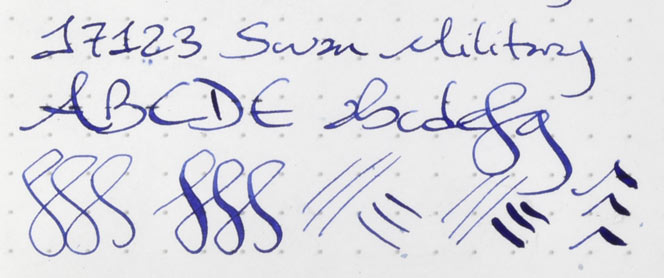 17123 Swan Military
ABCDE abcdefg